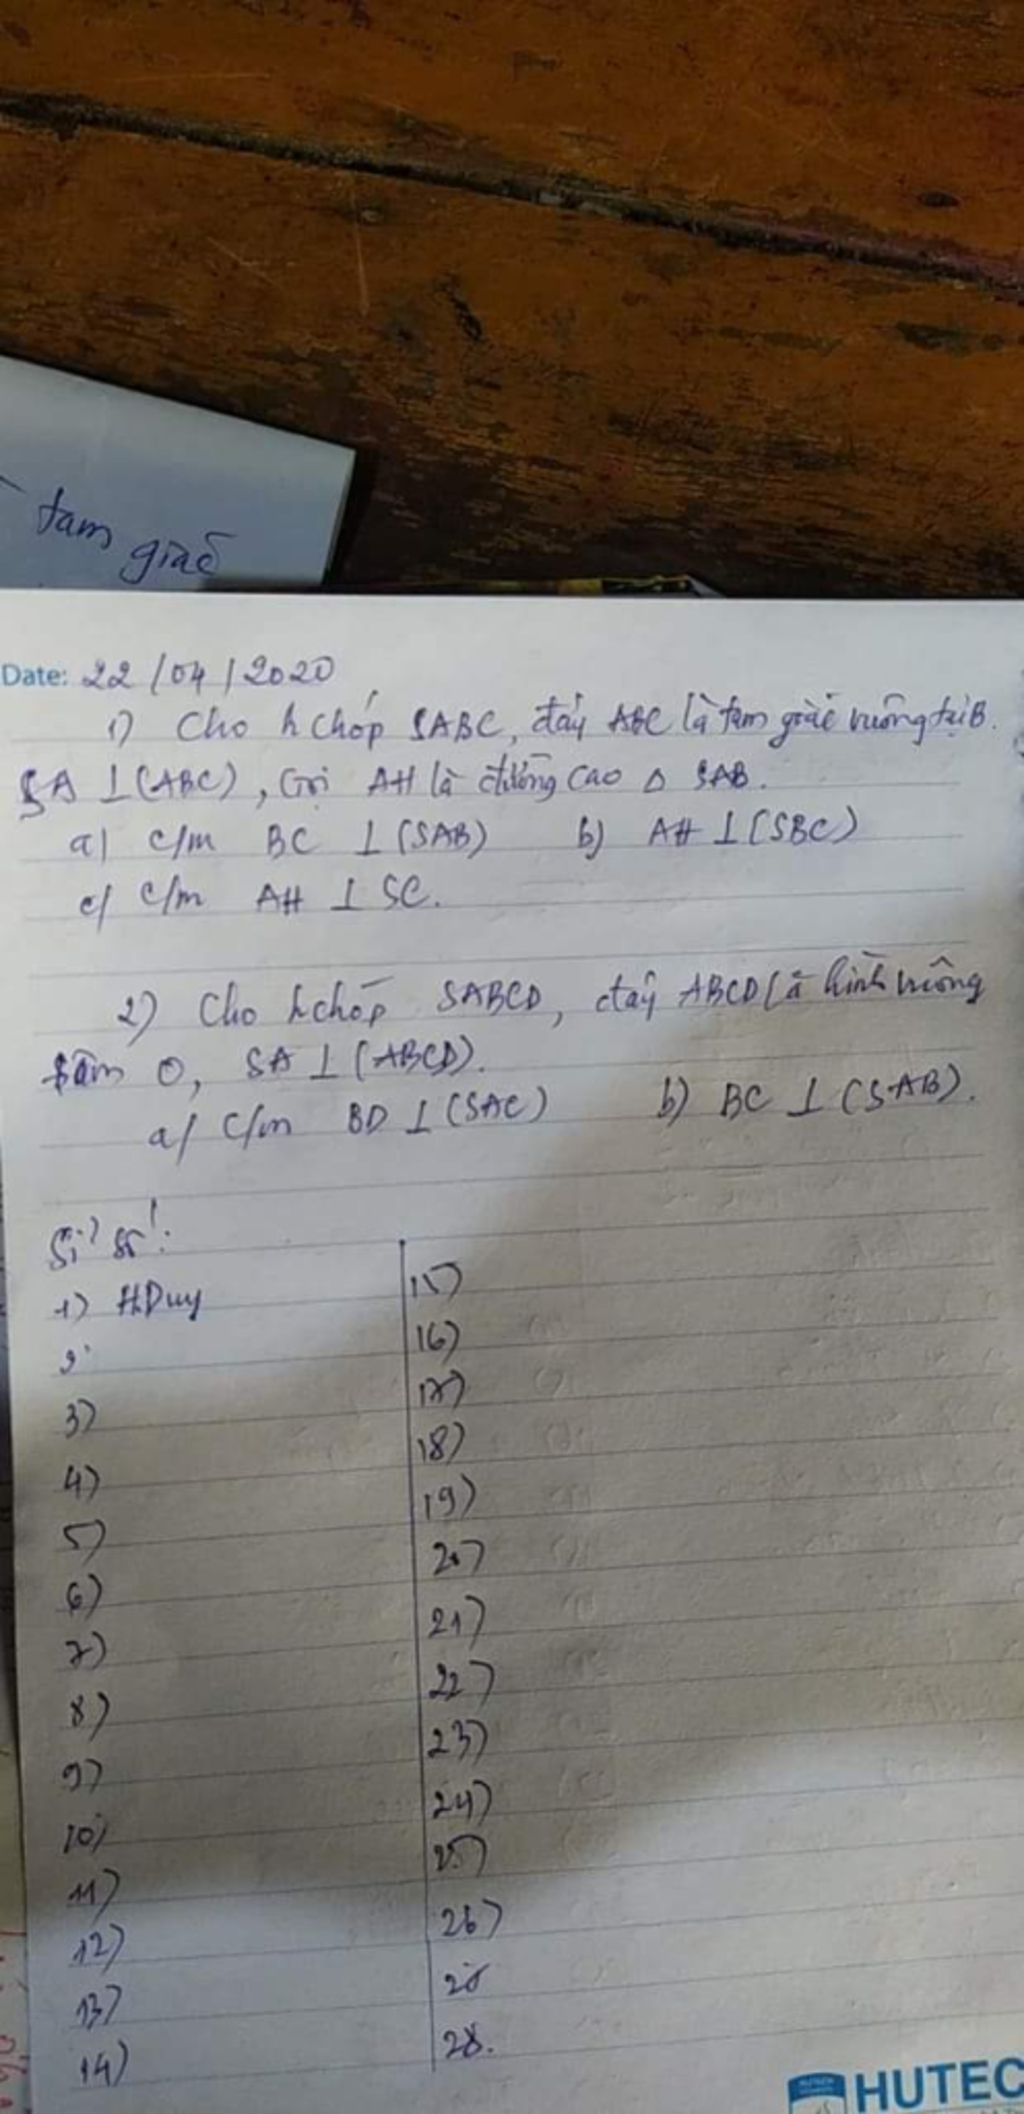 tam
giác
Date: 22/04/2020
1) Cho h chóp SABC, đáy ABC là tam giác vuông tại B.
SA ⊥ (ABC), Gọi AH là đường cao Δ SAB.
a) c/m BC ⊥ (SAB) b) AH ⊥ (SBC)
c/ c/m AH ⊥ SC.
2) Cho hchóp SABCD, đáy ABCD là hình vuông
tâm O, SA ⊥ (ABCD).
a/ C/m BD ⊥ (SAC) b) BC ⊥ (SAB).
Sĩ số:
1) H.Duy
2
3)
4)
5)
6)
7)
8)
9)
10)
11)
12)
13)
14)
15)
16)
17)
18)
19)
20)
21)
22)
23)
24)
25)
26)
28.
HUTEC